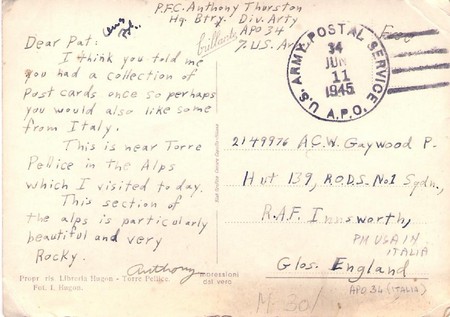 P.F.C. Anthony Thurston
Hq. Btry. Div. Arty
APO 34
7. US. Ar
Free
brillante
U.S. ARMY POSTAL SERVICE
34
JUN
11
1945
A.P.O.
Dear Pat:
I think you told me
you had a collection of
Post cards once so perhaps
you would also like some
from Italy.
This is near Torre
Pellice in the Alps
which I visited today.
This section of
the alps is particularly
beautiful and very
Rocky.
Anthony
Propr ria Libreria Hugon - Torre Pellice.
Fot. I. Hugon.
Impressioni
dal vero
2149976 A.C.W. Gaywood P.
Hut 139, R.O.D.S. No1 Sqdn.,
R.A.F. Innsworth,
Glos. England
PM USA IN
ITALIA
APO 34 (ITALIA)